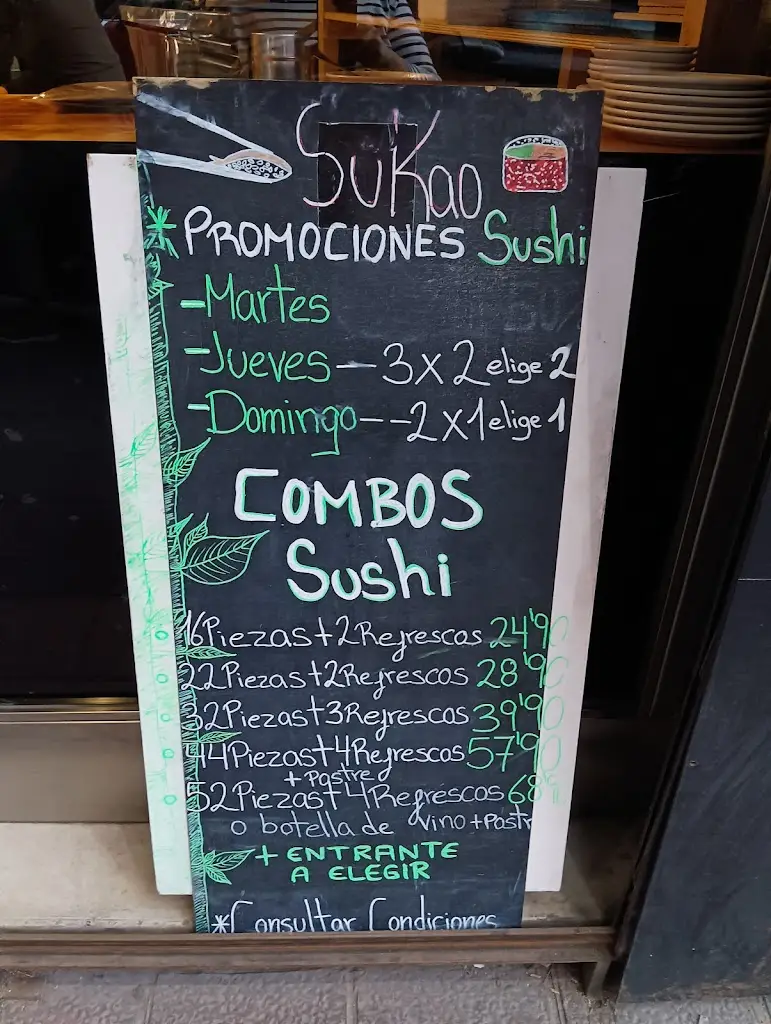 SuKao
* PROMOCIONES Sushi
- Martes
- Jueves -- 3x2 elige 2
- Domingo -- 2x1 elige 1
COMBOS
Sushi
16 Piezas + 2 Refrescos 24'90
22 Piezas + 2 Refrescos 28'90
32 Piezas + 3 Refrescos 39'90
44 Piezas + 4 Refrescos 57'90
+ Postre
52 Piezas + 4 Refrescos 68'
o botella de vino + Postr
+ ENTRANTE
A ELEGIR
* Consultar Condiciones